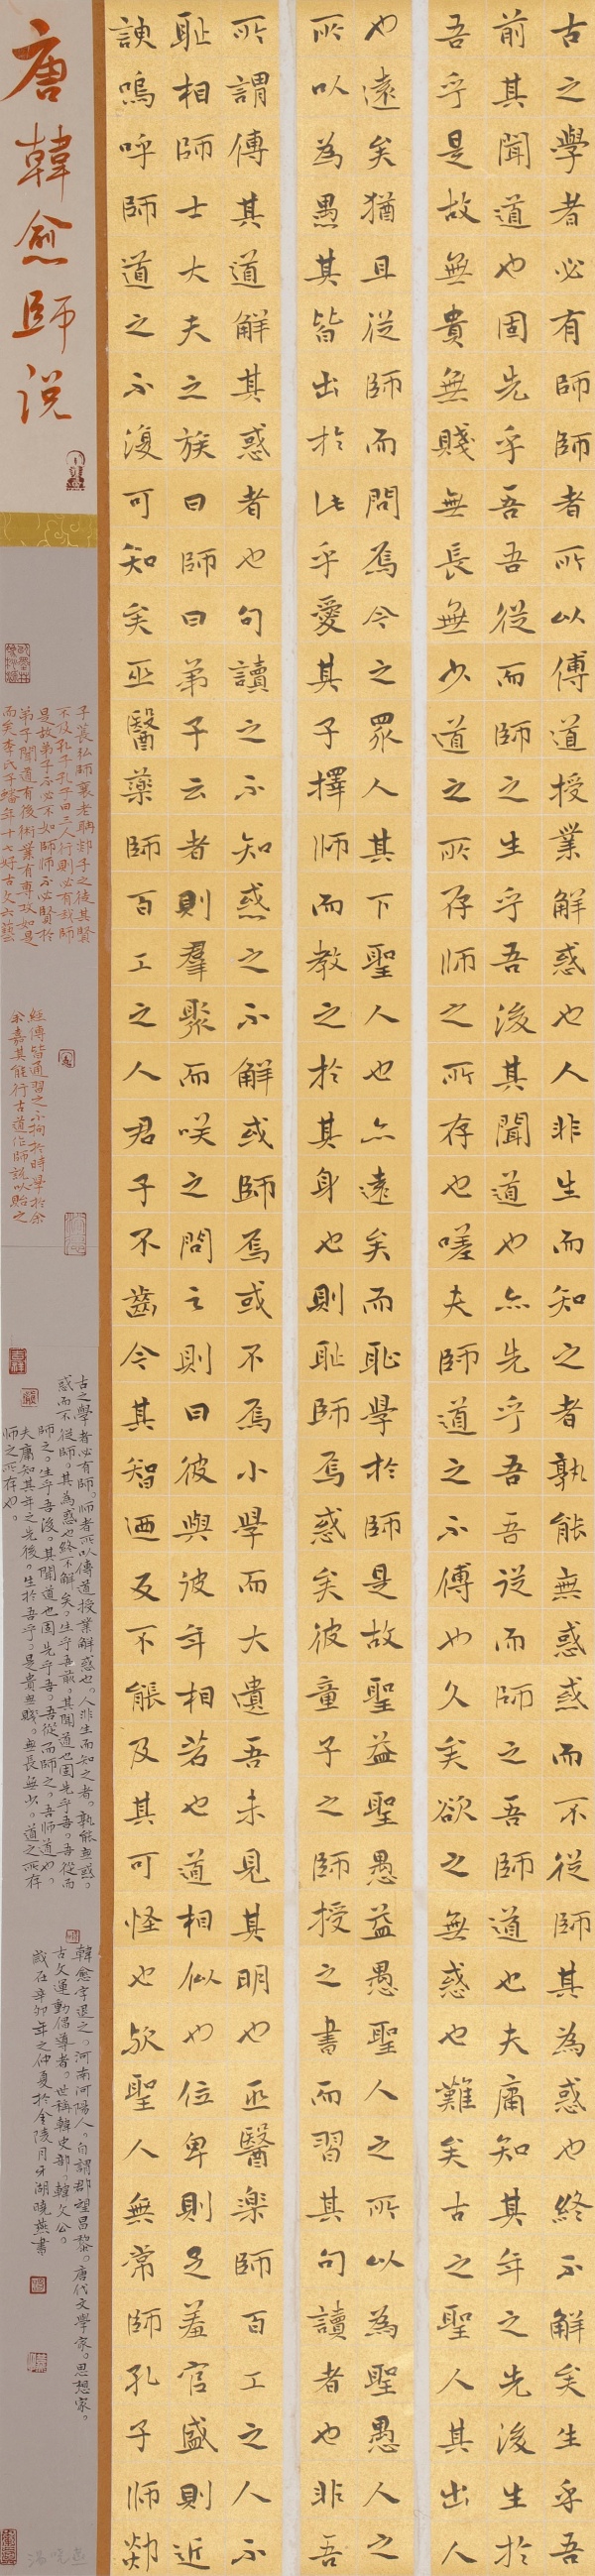 古之學者必有師師者所以傳道授業解惑也人非生而知之者孰能無惑惑而不從師其為惑也終不解矣生乎吾
前其聞道也固先乎吾吾從而師之生乎吾後其聞道也亦先乎吾吾從而師之吾師道也夫庸知其年之先後生於
吾乎是故無貴無賤無長無少道之所存師之所存也嗟夫師道之不傳也久矣欲之無惑也難矣古之聖人其出人
也遠矣猶且從師而問焉今之眾人其下聖人也亦遠矣而恥學於師是故聖益聖愚益愚聖人之所以為聖愚人之
所以為愚其皆出於此乎愛其子擇師而教之於其身也則恥師焉惑矣彼童子之師授之書而習其句讀者也非吾
所謂傳其道解其惑者也句讀之不知惑之不解或師焉或不焉小學而大遺吾未見其明也巫醫樂師百工之人不
恥相師士大夫之族曰師曰弟子云者則羣聚而咲之問之則曰彼與彼年相若也道相似也位卑則足羞官盛則近
諛嗚呼師道之不復可知矣巫醫藥師百工之人君子不齒今其智迺反不能及其可怪也歟聖人無常師孔子師郯
唐韓愈師說
子萇弘師襄老聃郯子之徒其賢
不及孔子孔子曰三人行則必有我師
是故弟子不必不如師師不必賢於
弟子聞道有後術業有專攻如是
而矣李氏子蟠年十七好古文六藝
經傳皆通習之不拘於時學於余
余嘉其能行古道作師說以貽之
古之學者必有師。師者所以傳道授業解惑也。人非生而知之者。孰能無惑。
惑而不從師。其為惑也終不解矣。生乎吾前。其聞道也固先乎吾。吾從而
師之。生乎吾後。其聞道也固先乎吾。吾從而師之。吾師道也。
夫庸知其年之先後。生於吾乎。是貴無賤。無長無少。道之所存
師之所存也。
韓愈字退之。河南河陽人。自謂郡望昌黎。唐代文學家。思想家。
古文運動倡導者。世稱韓吏部。韓文公。
歲在辛卯年之仲夏於金陵月牙湖曉燕書